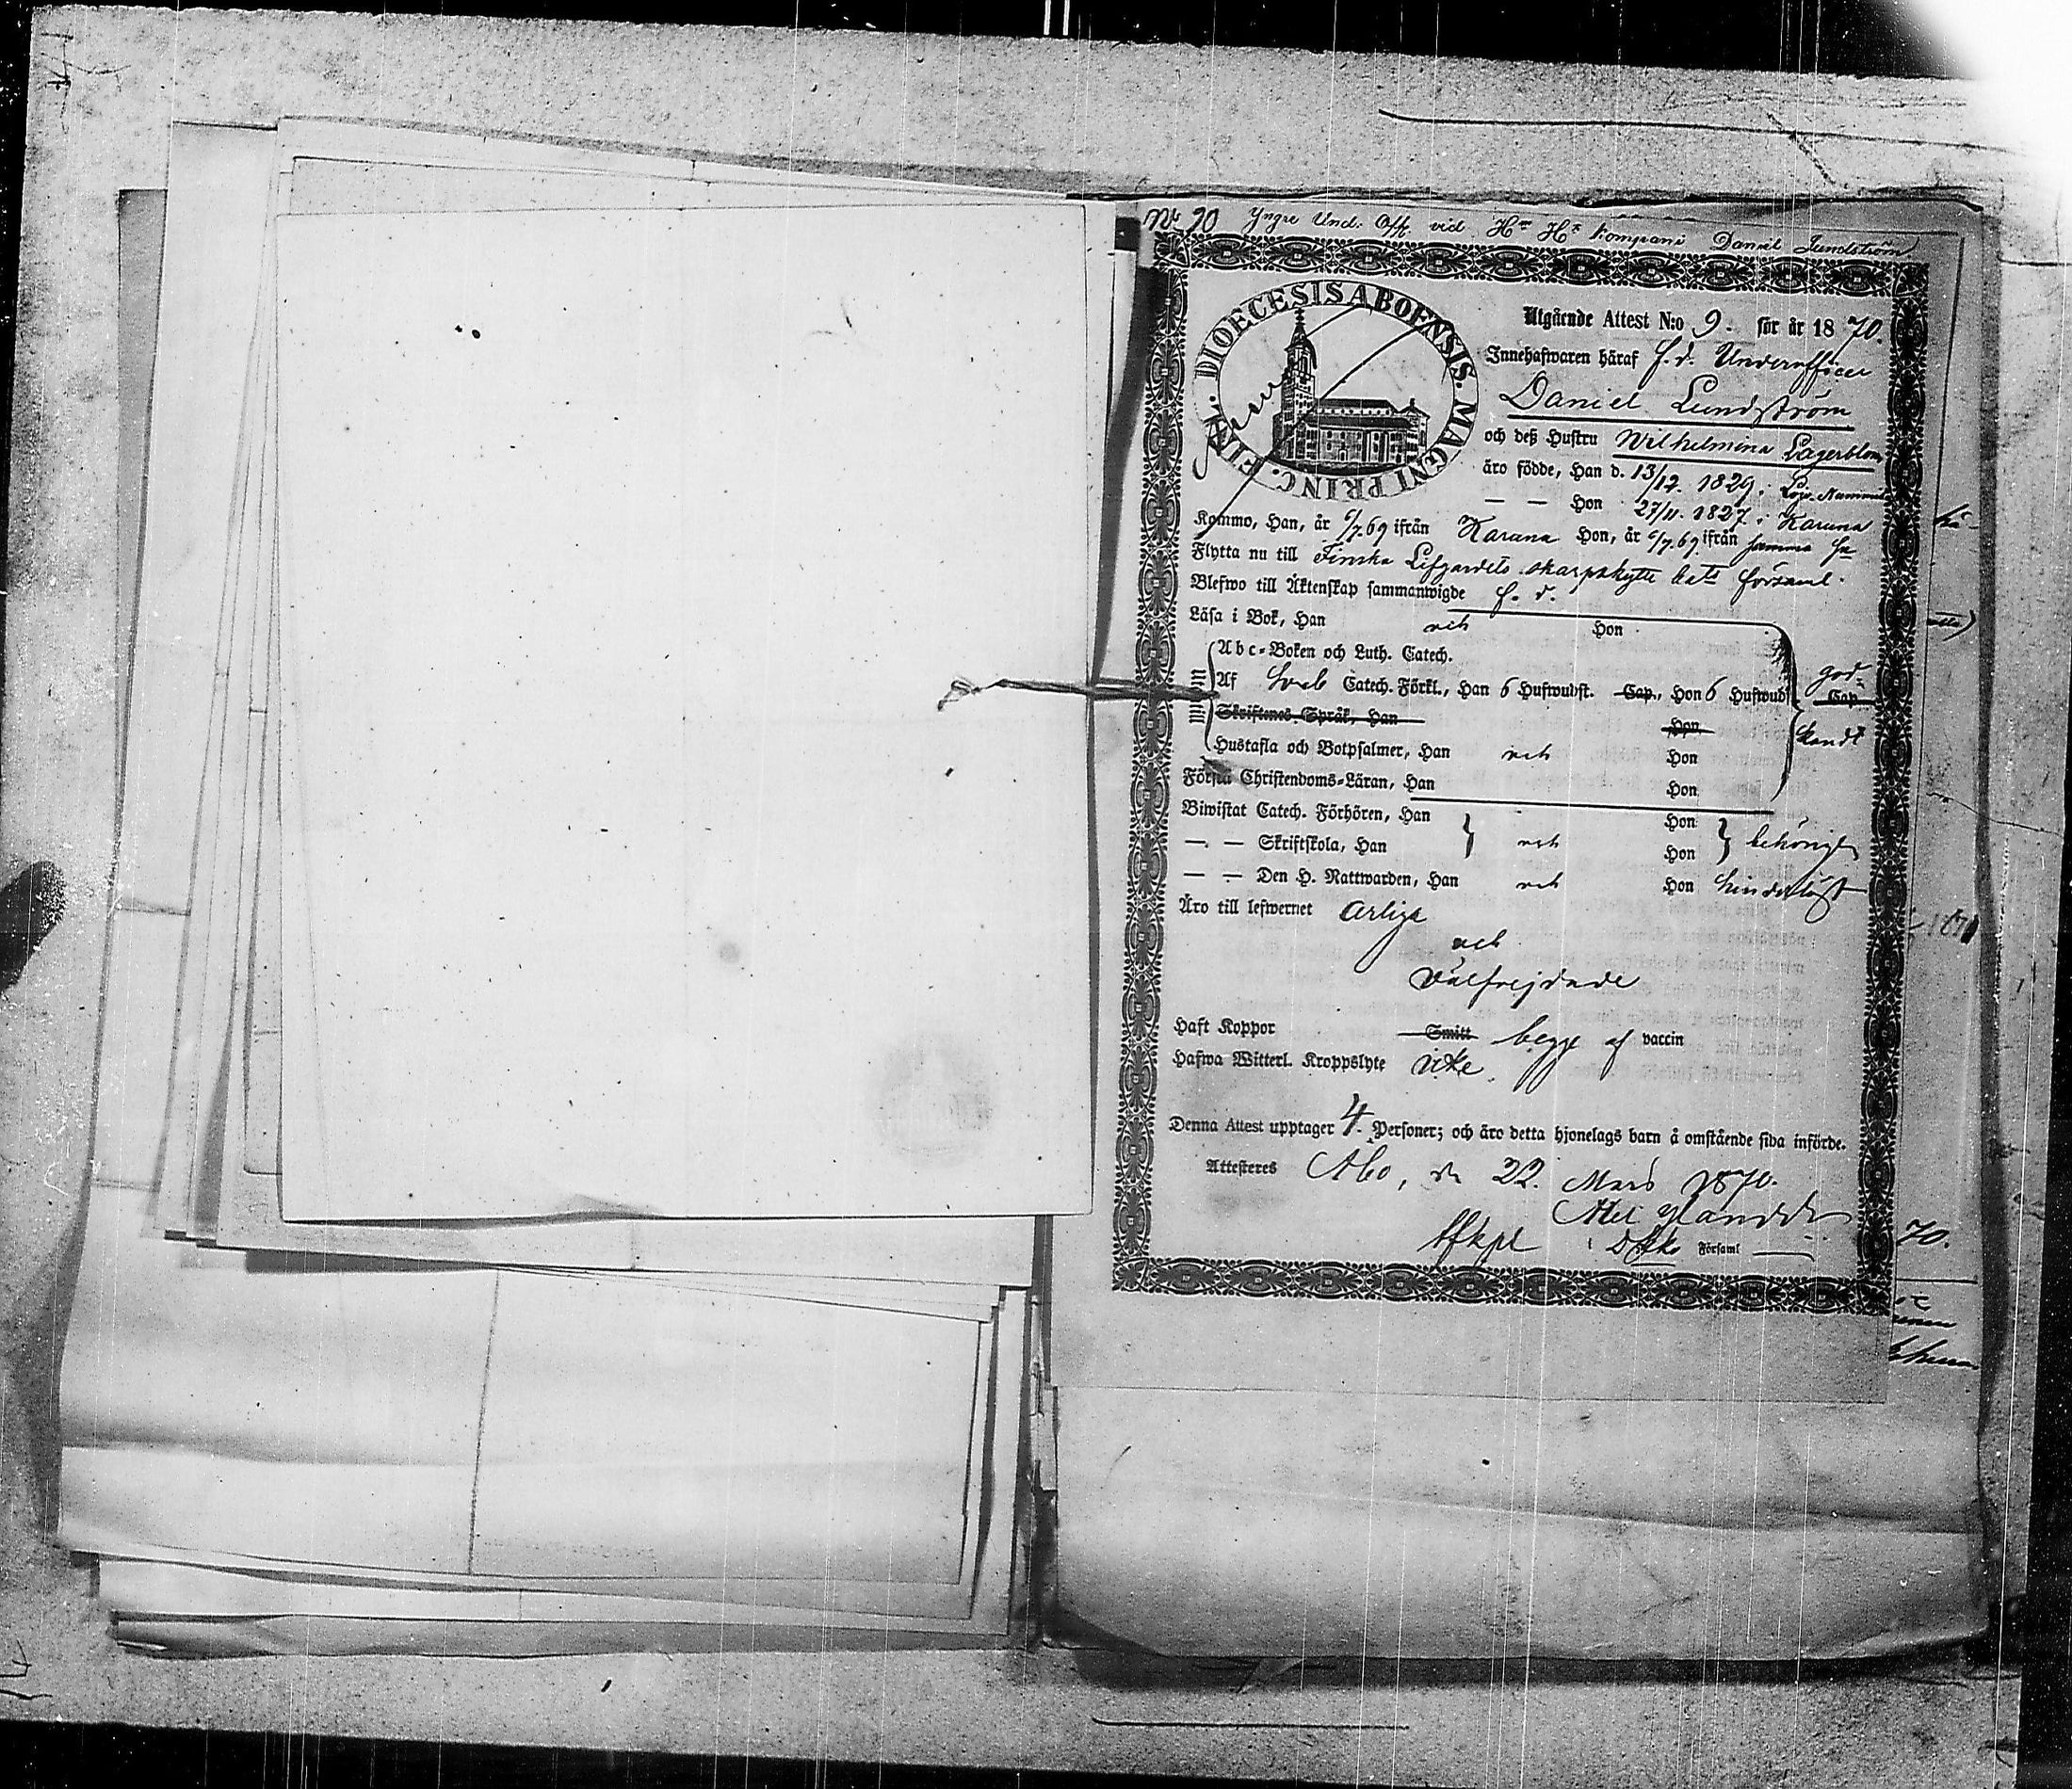 No 20 Yngre Und. Off. vid Kompani Daniel Lundström
DIOECESIS ABOENSIS. MAGNI PRINC. FINL.
Utgående Attest N:o 9. för år 1870.
Innehafwaren häraf f. d. Underofficer
Daniel Lundström
och deß Hustru Wilhelmina Lagerblom,
äro födde, Han d. 13/12. 1829, i Nummis
— — Hon 27/11. 1827, i Karuna
Kommo, Han, år 6/7.69 ifrån Karuna Hon, år 6/7.69 ifrån samma
Flytta nu till Finska Lifgardets skarpskytte bats församl.
Blefwo till Äktenskap sammanwigde f. d.
Läsa i Bok, Han och Hon
Abc-Boken och Luth. Catech.
Af Catech. Förkl., Han 6 Hufwudst. Cap., Hon 6 Hufwudst. Cap. god-
Utantill
Skriftenes Språk, Han Hon
Hustafla och Botpsalmer, Han och Hon känd.
Första Christendoms-Läran, Han Hon
Biwistat Catech. Förhören, Han Hon
— — Skriftskola, Han och Hon behörigt
— — Den H. Nattwarden, Han och Hon hinderlöst
Äro till lefwernet ärliga
och
välfrejdade
Haft Koppor Smitt begge af vaccin
Hafwa Witterl. Kroppslyte icke.
Denna Attest upptager 4. Personer; och äro detta hjonelags barn å omstående sida införde.
Attesteras Åbo, d. 22. Mars 1870.
i Församl
70.